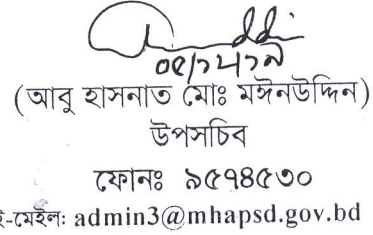 ০৫/১২/১৯
(আবু হাসনাত মোঃ মঈনউদ্দিন)
উপসচিব
ফোনঃ ৯৫৭৪৫৩০
ই-মেইল: admin3@mhapsd.gov.bd